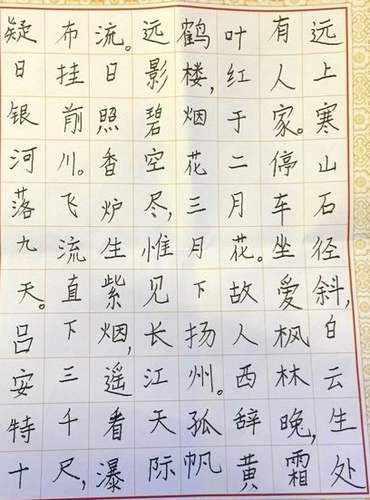 远上寒山石径斜,白云生处
有人家。停车坐爱枫林晚,霜
叶红于二月花。故人西辞黄
鹤楼,烟花三月下扬州。孤帆
远影碧空尽,惟见长江天际
流。日照香炉生紫烟,遥看瀑
布挂前川。飞流直下三千尺,
疑日银河落九天。吕安特十